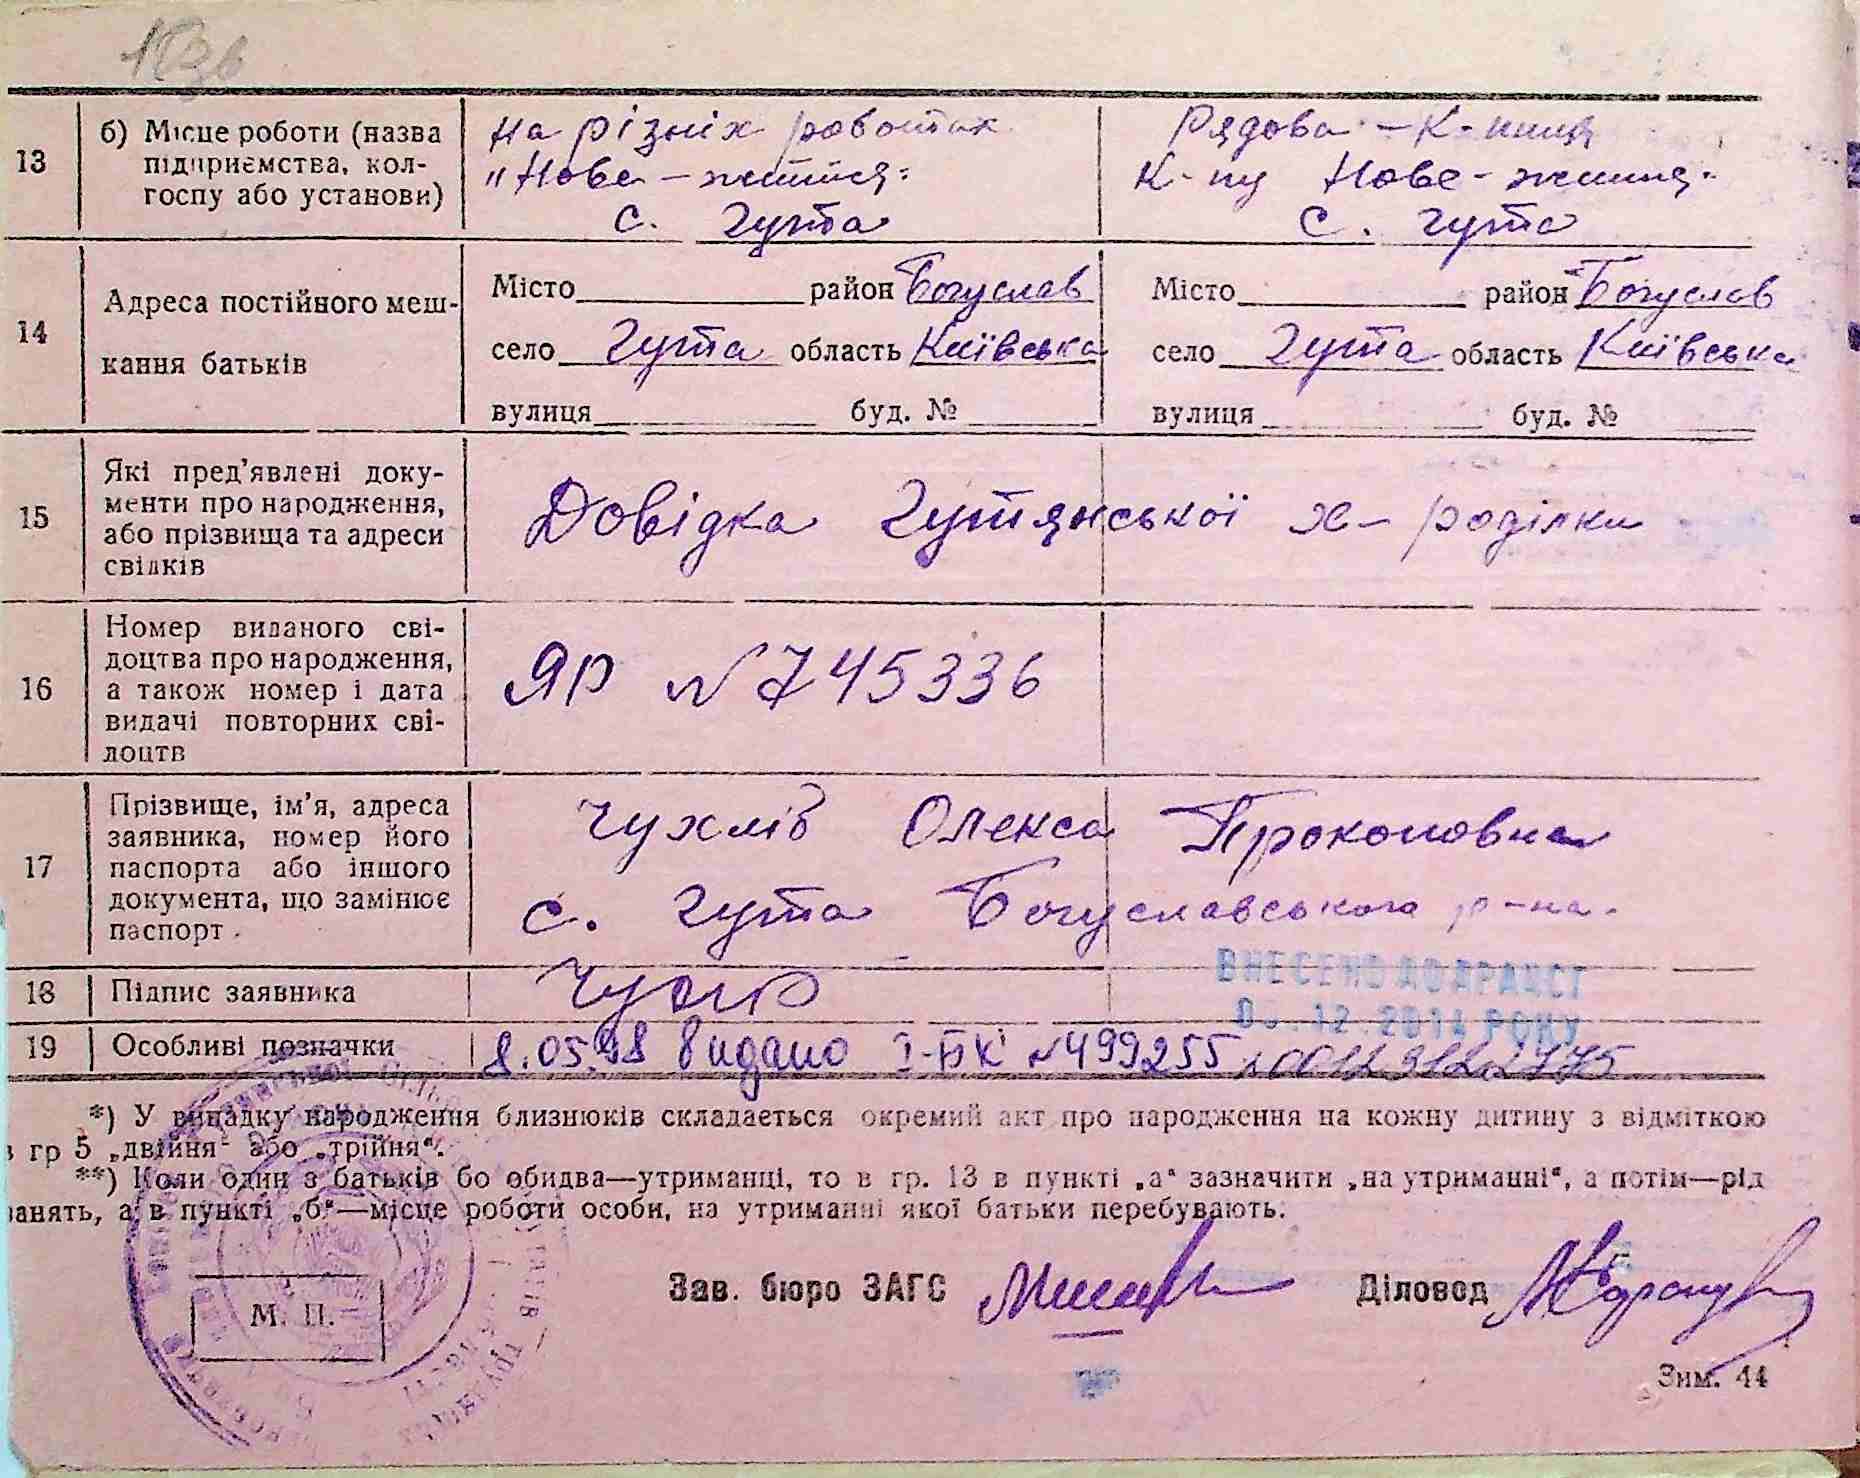 13 б) Місце роботи (назва підприємства, колгоспу або установи)
на різніх роботах
"Нове-життя"
с. Гута
Рядова - К-ниця
К-пу Нове-життя"
с. Гута
14 Адреса постійного мешкання батьків
Місто район Богуслав
село Гута область Київська
вулиця буд. №
Місто район Богуслав
село Гута область Київська
вулиця буд. №
15 Які пред'явлені документи про народження, або прізвища та адреси свідків
Довідка Гутянської х-роділки
16 Номер виданого свідоцтва про народження, а також номер і дата видачі повторних свідоцтв
ЯР № 745336
17 Прізвище, ім'я, адреса заявника, номер його паспорта або іншого документа, що замінює паспорт
Чухліб Олекса Прокоповна
с. Гута Богуславського р-на.
18 Підпис заявника
ВНЕСЕНО ДО ДРАЦСГ
12.2014 РОКУ
19 Особливі позначки
8.05.98 видано І-БК №499255
*) У випадку народження близнюків складається окремий акт про народження на кожну дитину з відміткою
в гр 5 „двійня" або „трійня".
**) Коли один з батьків бо обидва—утриманці, то в гр. 13 в пункті „а" зазначити „на утриманні", а потім—рід
занять, а в пункті „б"—місце роботи особи, на утриманні якої батьки перебувають.
М. П.
Зав. бюро ЗАГС
Діловод
Зим. 44